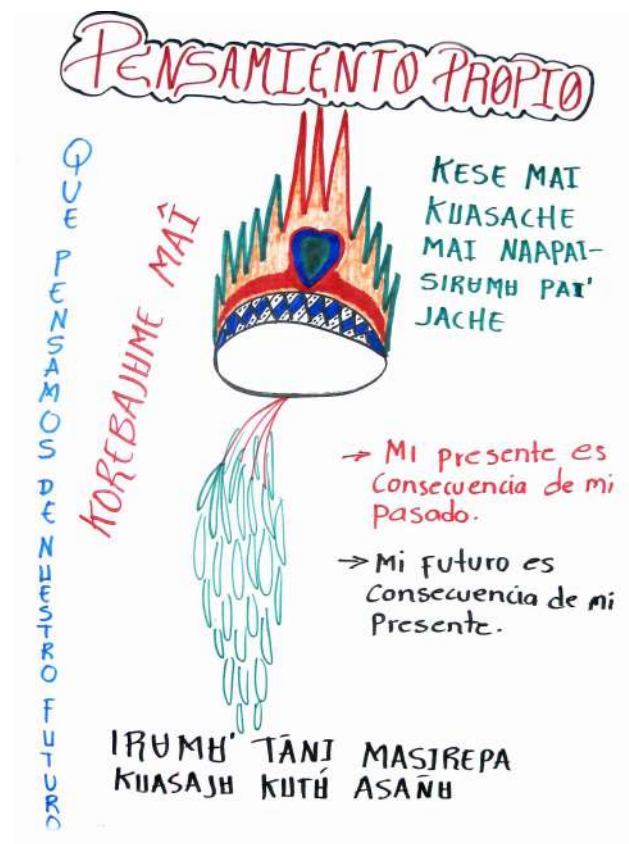 PENSAMIENTO PROPIO
QUE PENSAMOS DE NUESTRO FUTURO
KOREBAJɄME MAÎ
KESE MAI
KUASACHE
MAI NAAPAI-
SIRɄMɄ PAI'
JACHE
→ Mi presente es
Consecuencia de mi
pasado.
→ Mi futuro es
Consecuencia de mi
Presente.
IRɄMɄ' TĀNI MASIREPA
KUASAJɄ KUTɄ́ ASAÑɄ